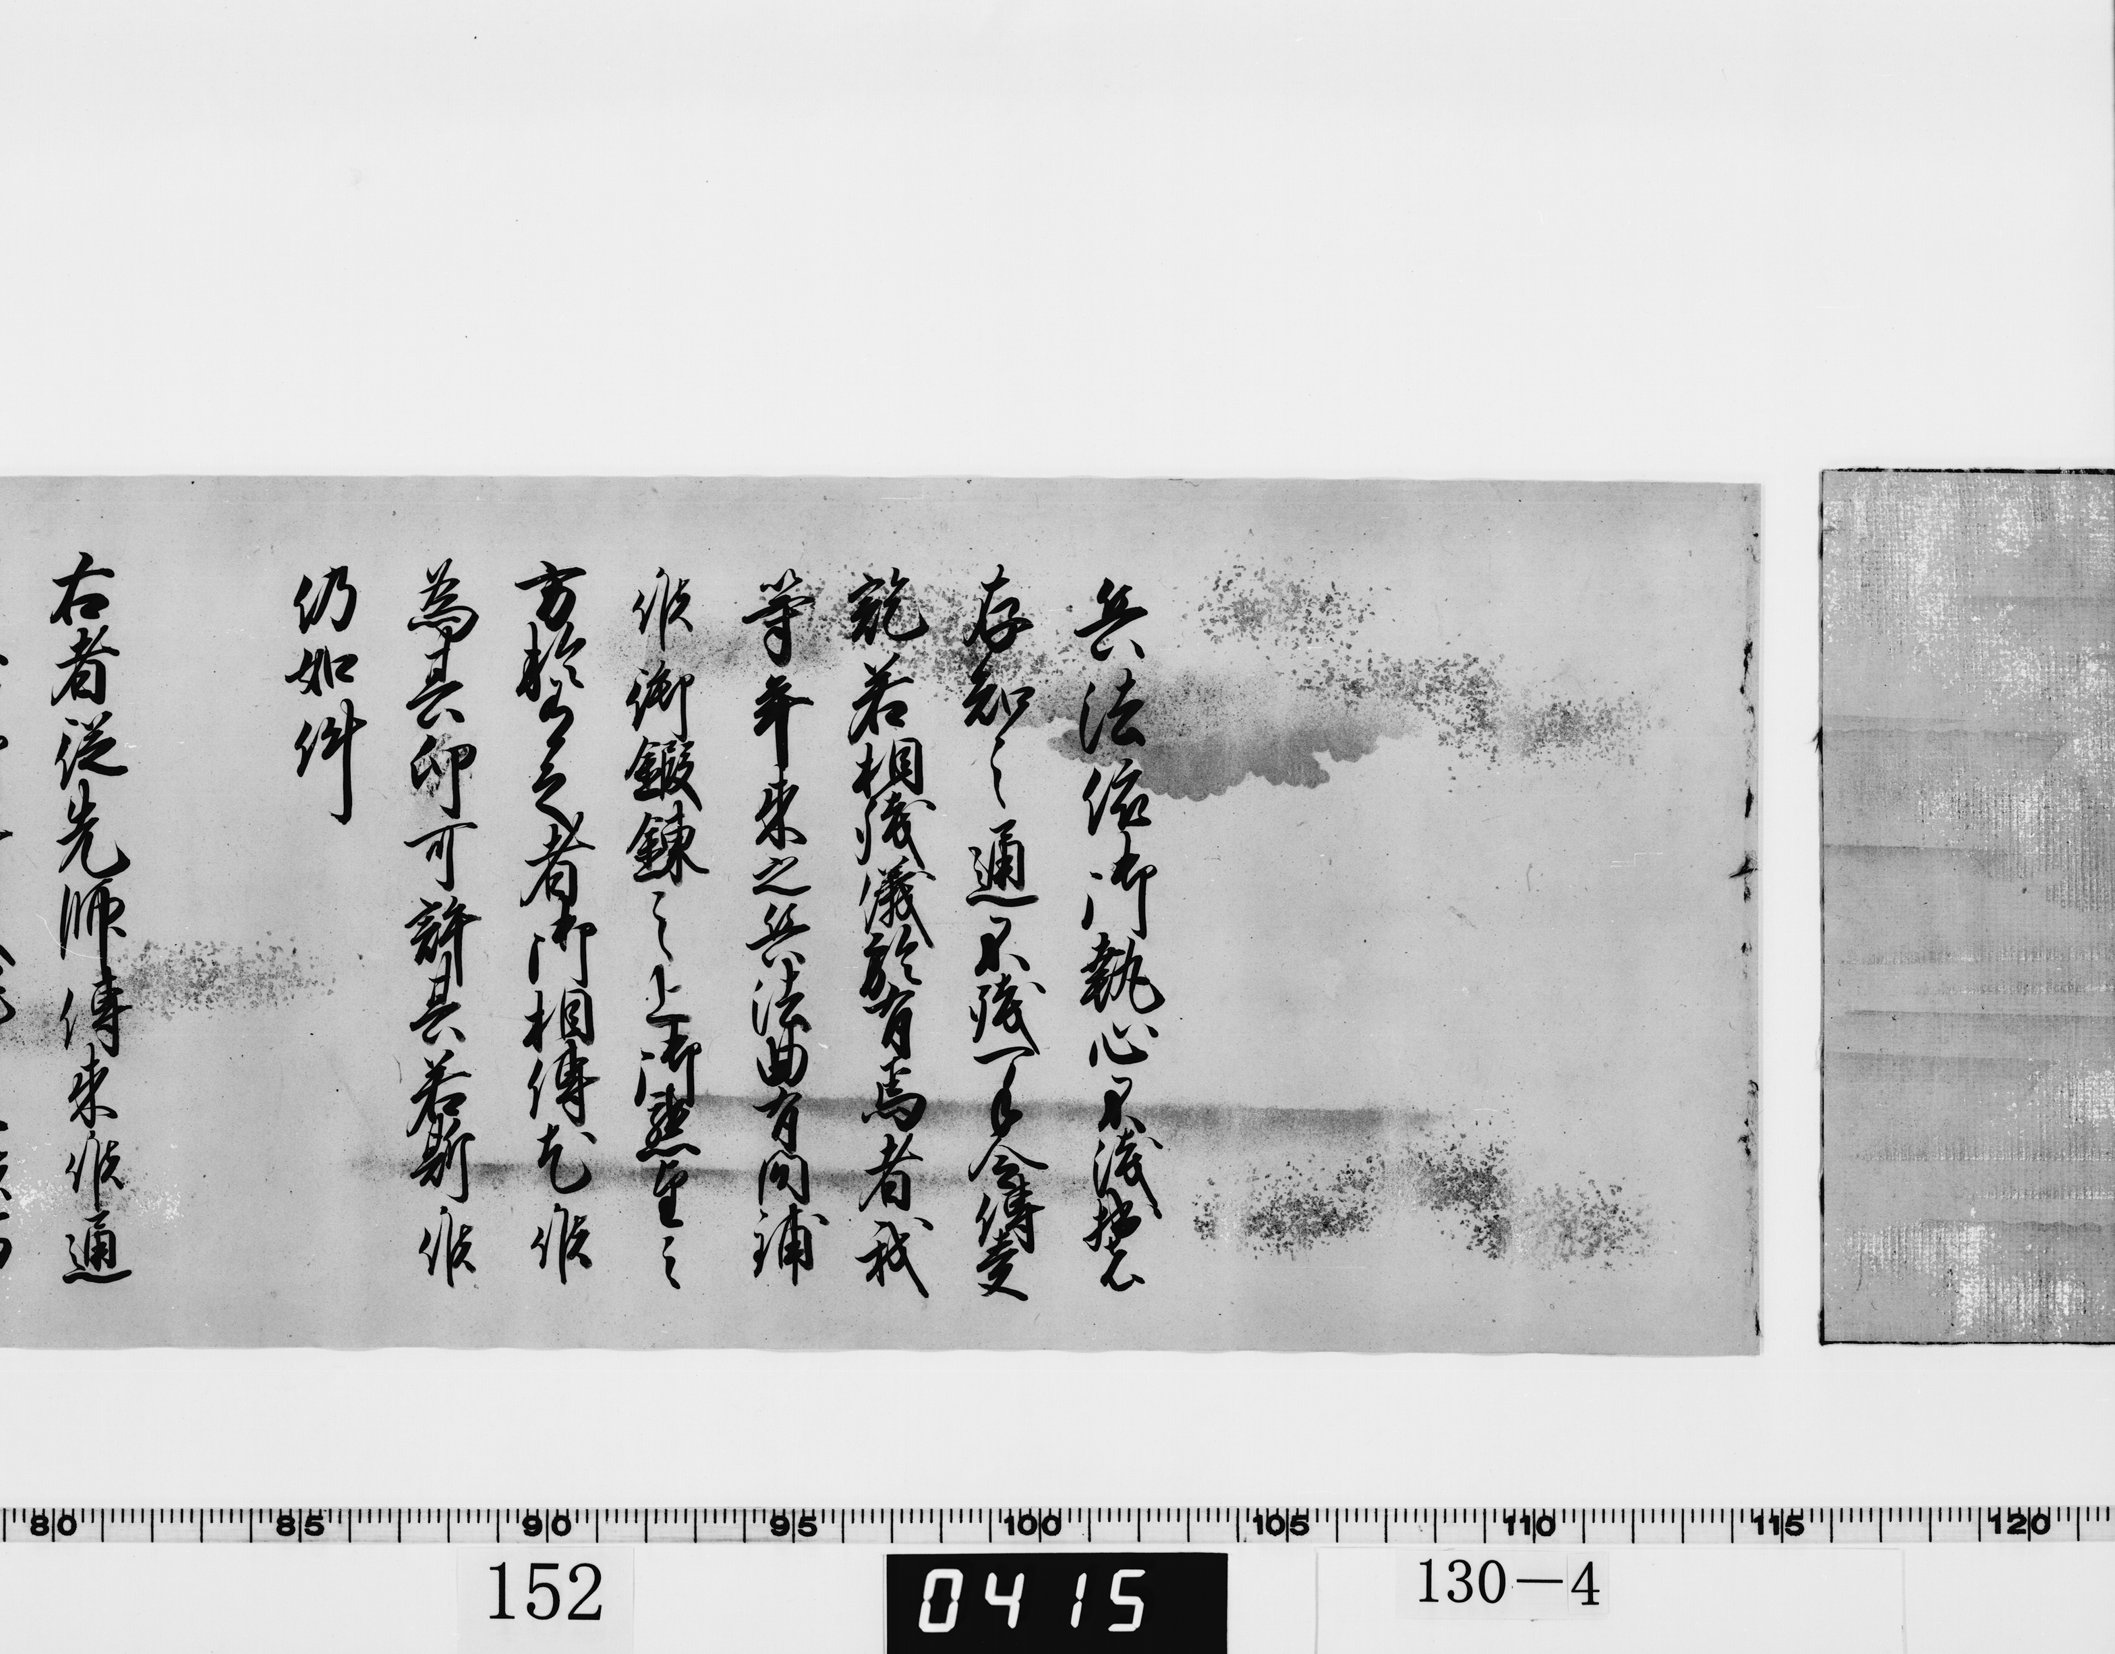 兵法依御執心不浅拙者
存知之通不残一手令傳受
訖若相残儀於有焉者我
等年来之兵法曲有間鋪
候御鍛錬之上御熟望之
方於有之者御相傳尤候
為其印可許其若斯候
仍如件
右者従先師傳来候通
80 85 90 95 100 105 110 115 120
152
0415
130-4